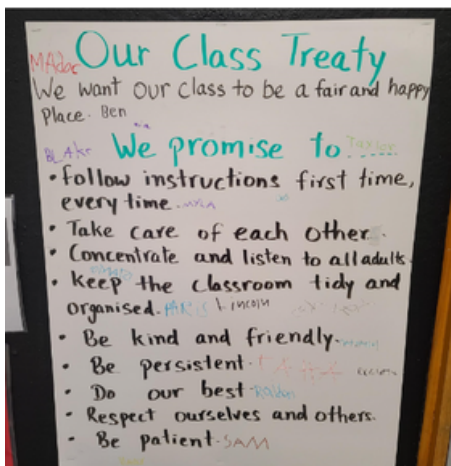 MAdoc Our Class Treaty
We want our class to be a fair and happy
Place. Ben
BLAke We promise to..... Taylor
• follow instructions first time,
every time. MYLA
• Take care of each other.
• Concentrate and listen to all adults.
• keep the classroom tidy and
organised. PARIS Lincoln
• Be kind and friendly.
• Be persistent.
• Do our best.
• Respect ourselves and others.
• Be patient. SAM